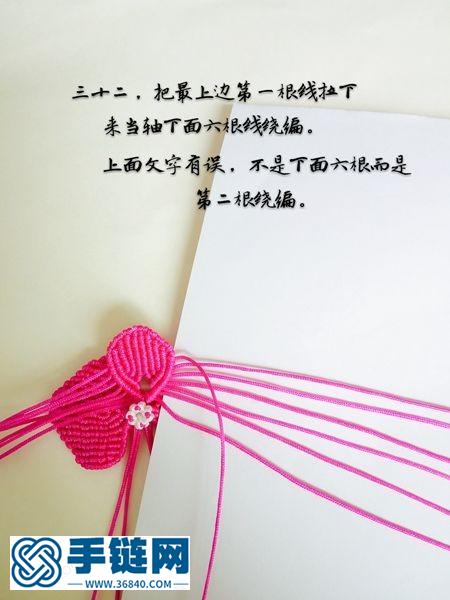 三十二，把最上边第一根线拉下
来当轴下面六根线绕编。
上面文字有误，不是下面六根而是
第二根绕编。
手链网
WWW.36840.COM